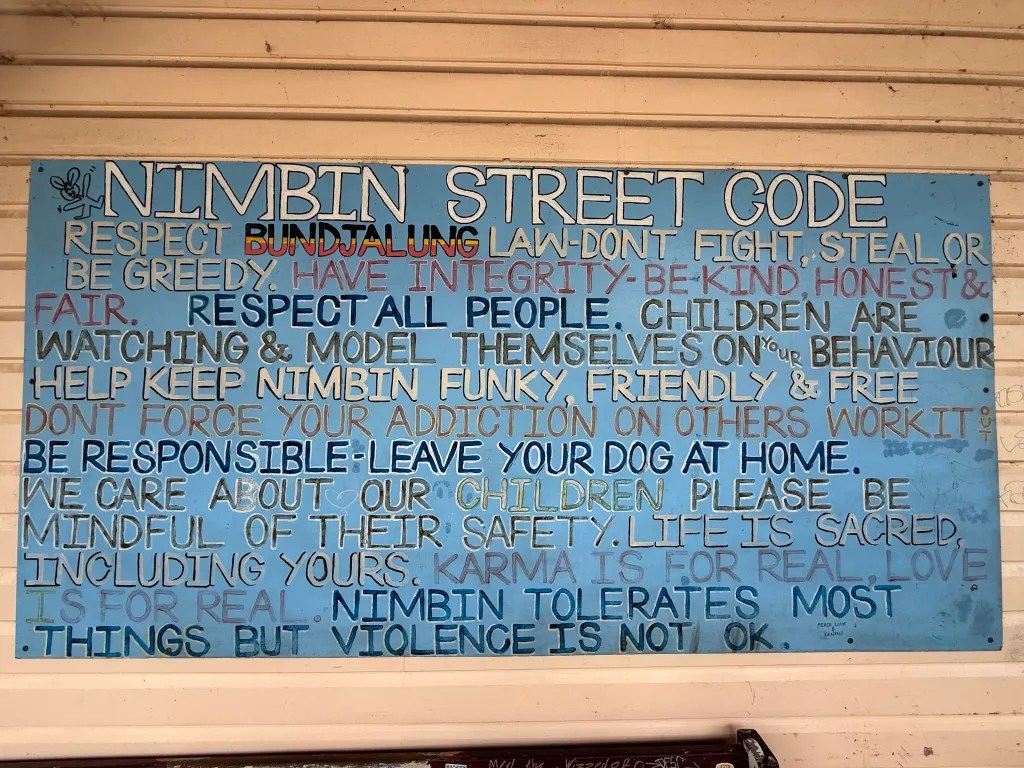 NIMBIN STREET CODE
RESPECT BUNDJALUNG LAW-DONT FIGHT, STEAL OR
BE GREEDY. HAVE INTEGRITY-BE KIND, HONEST &
FAIR. RESPECT ALL PEOPLE. CHILDREN ARE
WATCHING & MODEL THEMSELVES ON YOUR BEHAVIOUR
HELP KEEP NIMBIN FUNKY, FRIENDLY & FREE
DONT FORCE YOUR ADDICTION ON OTHERS WORK IT OUT
BE RESPONSIBLE-LEAVE YOUR DOG AT HOME.
WE CARE ABOUT OUR CHILDREN PLEASE BE
MINDFUL OF THEIR SAFETY. LIFE IS SACRED,
INCLUDING YOURS. KARMA IS FOR REAL, LOVE
IS FOR REAL. NIMBIN TOLERATES MOST
THINGS BUT VIOLENCE IS NOT OK.
PEACE LOVE